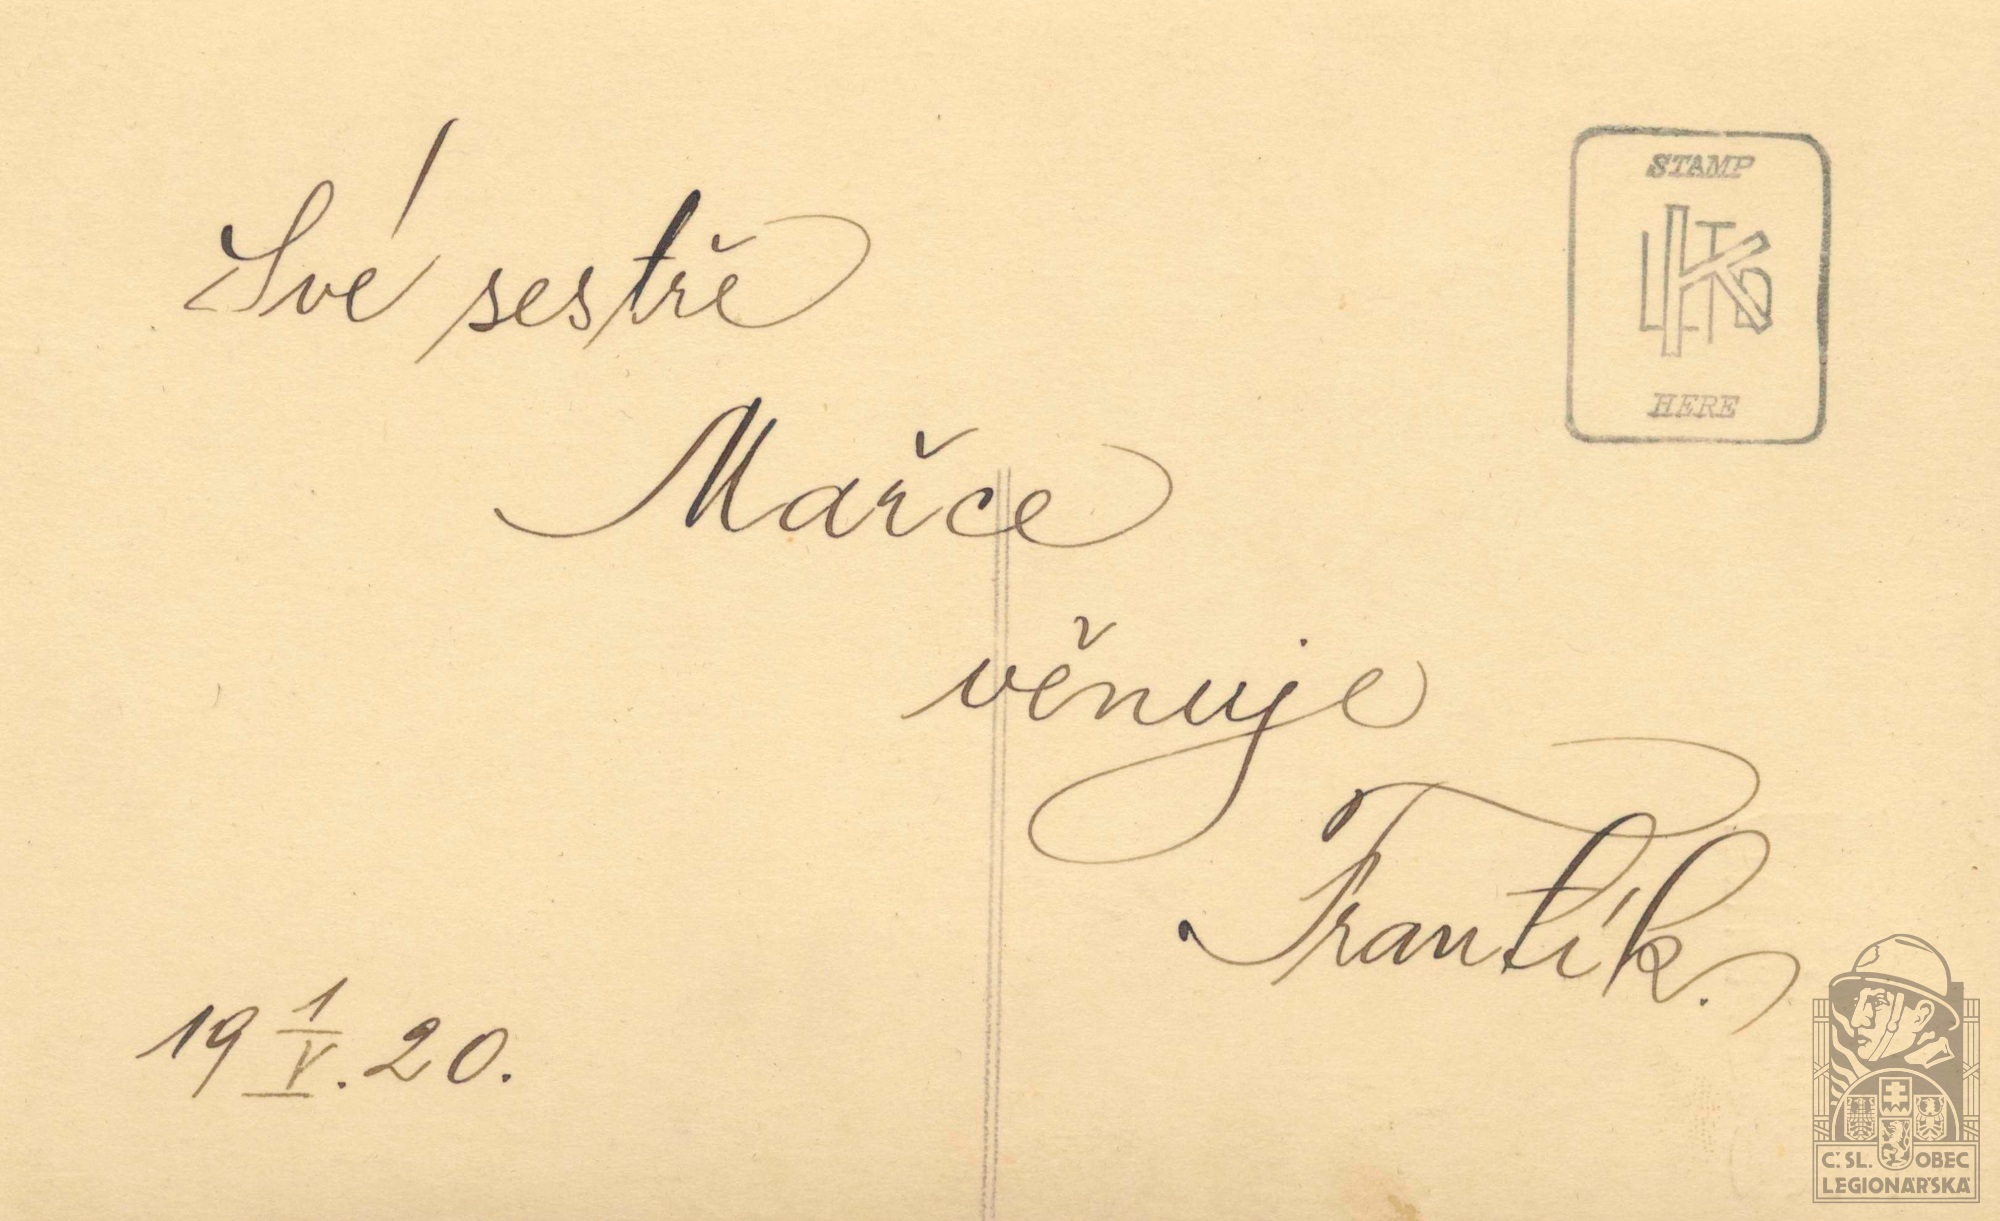 Své sestře
STAMP
K LTD
HERE
Mařce
věnuje
Frantík.
19 1/V. 20.
Č.SL. OBEC
LEGIONÁŘSKÁ